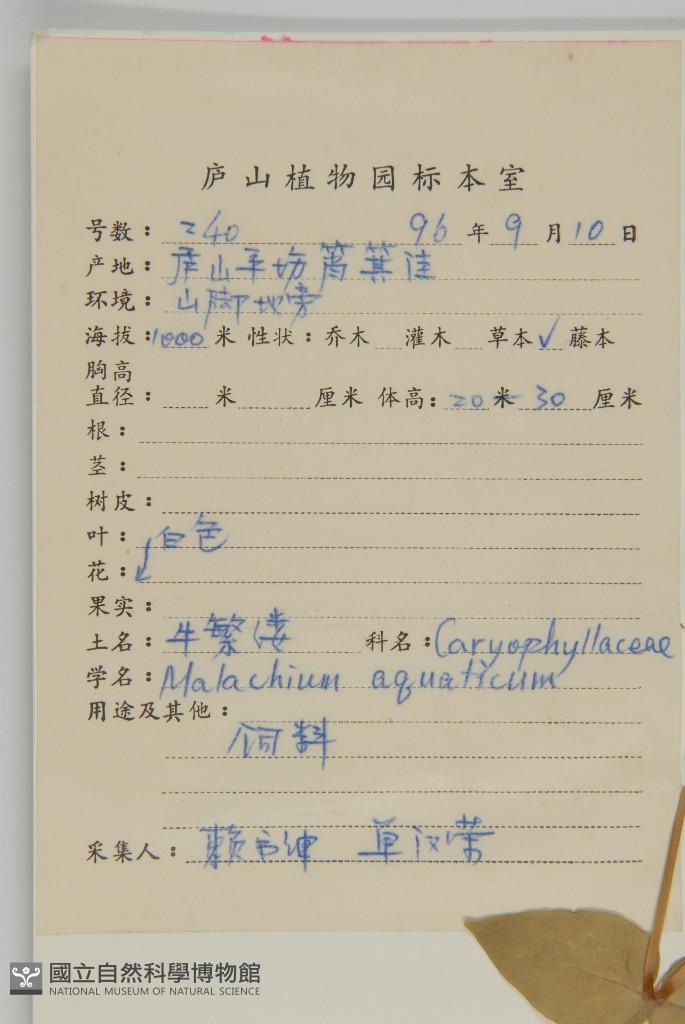 庐山植物园标本室
号数：240 96年9月10日
产地：庐山羊坊筲箕洼
环境：山脚地旁
海拔：1000米 性状：乔木 灌木 草本✓ 藤本
胸高
直径： 米 厘米 体高：20米-30厘米
根：
茎：
树皮：
叶：白色
花：
果实：
土名：牛繁缕 科名：Caryophyllaceae
学名：Malachium aquaticum
用途及其他：
饲料
采集人：赖书绅 单汉荣
國立自然科學博物館
NATIONAL MUSEUM OF NATURAL SCIENCE